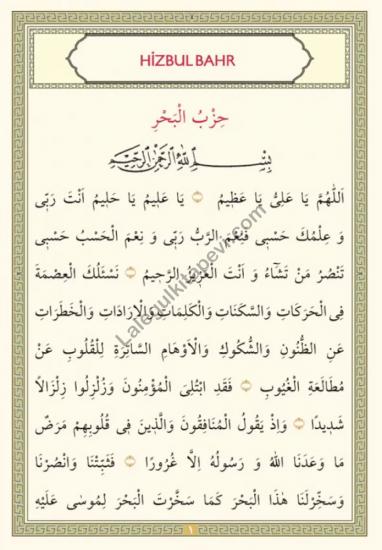 HİZBUL BAHR
حِزْبُ الْبَحْرِ
بِسْمِ اللهِ الرَّحْمٰنِ الرَّحِيمِ
اَللّٰهُمَّ يَا عَلِىُّ يَا عَظِيمُ ۞ يَا عَلِيمُ يَا حَلِيمُ اَنْتَ رَبّى
وَ عِلْمُكَ حَسْبى فَنِعْمَ الرَّبُّ رَبّى وَ نِعْمَ الْحَسْبُ حَسْبى
تَنْصُرُ مَنْ تَشَاءُ وَ اَنْتَ الْعَزِيزُ الرَّحِيمُ ۞ نَسْئَلُكَ الْعِصْمَةَ
فِى الْحَرَكَاتِ وَالسَّكَنَاتِ وَالْكَلِمَاتِ وَالْاِرَادَاتِ وَالْخَطَرَاتِ
عَنِ الظُّنُونِ وَالشُّكُوكِ وَالْاَوْهَامِ السَّاتِرَةِ لِلْقُلُوبِ عَنْ
مُطَالَعَةِ الْغُيُوبِ ۞ فَقَدِ ابْتُلِىَ الْمُؤْمِنُونَ وَزُلْزِلُوا زِلْزَالًا
شَدِيدًا ۞ وَاِذْ يَقُولُ الْمُنَافِقُونَ وَالَّذِينَ فى قُلُوبِهِمْ مَرَضٌ
مَا وَعَدَنَا اللهُ وَ رَسُولُهُ اِلَّا غُرُورًا ۞ فَثَبِّتْنَا وَانْصُرْنَا
وَسَخِّرْلَنَا هٰذَا الْبَحْرَ كَمَا سَخَّرْتَ الْبَحْرَ لِمُوسٰى عَلَيْهِ
١
Lalegulkitapevi.com